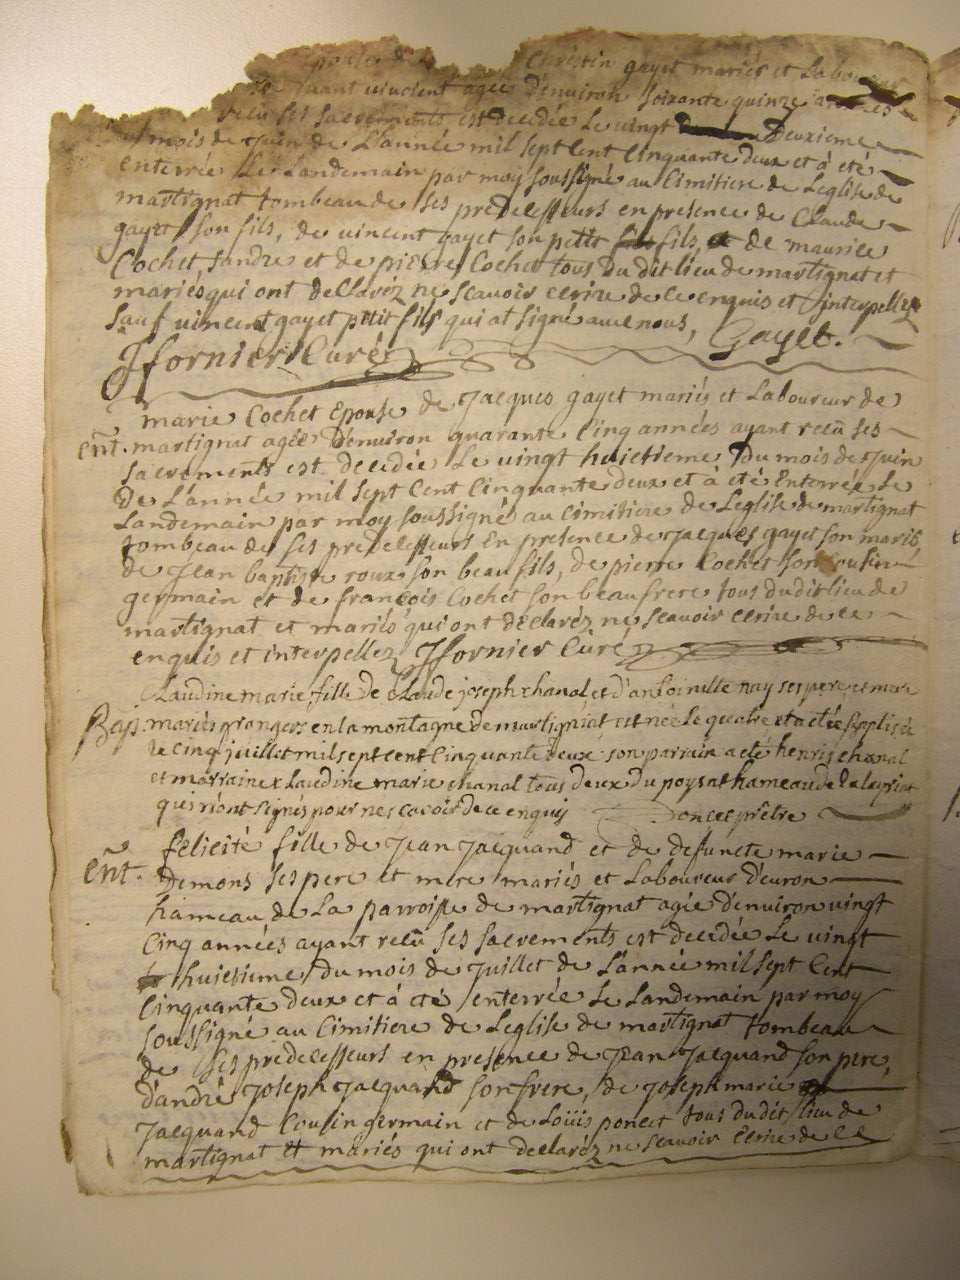 Christin gayet mariés et Laboureur
vincient agée d'environ soixante quinze années
recu ses sacrements est decedée Le vingt Deuxieme
mois de juin de L'année mil sept Cent Cinquante deux et à eté
enterrée Le Landemain par moy soussigné au Cimitiere de Leglise de
martignat tombeau de ses predecesseurs en presence de Claude
gayet son fils, de vincent gayet son petit fils, et de maurice
Cochet, et de pierre Cochet tous du dit lieu de martignat et
mariés qui ont declarez ne scavoir ecrire de ce enquis et interpellez
sauf vincent gayet petit fils qui at signé avec nous, Gayet.
Jfornier Curé
marie Cochet Epouse de Jacques gayet mariés et Laboureur de
ent. martignat agée D'environ quarante Cinq années ayant recû ses
sacrements est decedée Le vingt huictieme Du mois de Juin
De L'année mil sept Cent Cinquante deux et à eté Enterrée Le
Landemain par moy soussigné au Cimitiere de Leglise de martignat
tombeau de ses predecesseurs En presence de Jacques gayet son marit,
de Jean baptiste roux son beau fils, de pierre Cochet son cousin
germain et de françois Cochet son beau frere tous du dit lieu de
martignat et mariés qui ont declarez ne scavoir ecrire de ce
enquis et interpellez Jfornier Curé
Claudine marie, fille de Claude joseph chanal et d'antoinette nay ses pere et mere
Bap. mariés grangers en la montagne de martigniat est née le quatre et a eté Baptisée
le cinq juillet mil sept cent Cinquante deux son parrain a eté henris chanal
et marraine Claudine marie chanal tous deux du poysat hameau de
qui n'ont signés pour ne scavoir de ce enquis prêtre
ent. felicité fille de Jean Jacquand et de defuncte marie
Demons ses pere et mere mariés et Laboureur d'euron
hameau de La parroisse de martignat agée d'environ vingt
Cinq années ayant recû ses sacrements est decedée Le vingt
huictieme du mois de Juillet de L'année mil sept Cent
Cinquante deux et à eté enterrée Le Landemain par moy
soussigné au Cimitiere de Leglise de martignat tombeau
de ses predecesseurs en presence de Jean Jacquand son pere,
d'andré Joseph Jacquand son frere, de Joseph marie
Jacquand Cousin germain et de Loüis poncet tous du dit lieu de
martignat et mariés qui ont declarez ne scavoir Ecrire de ce